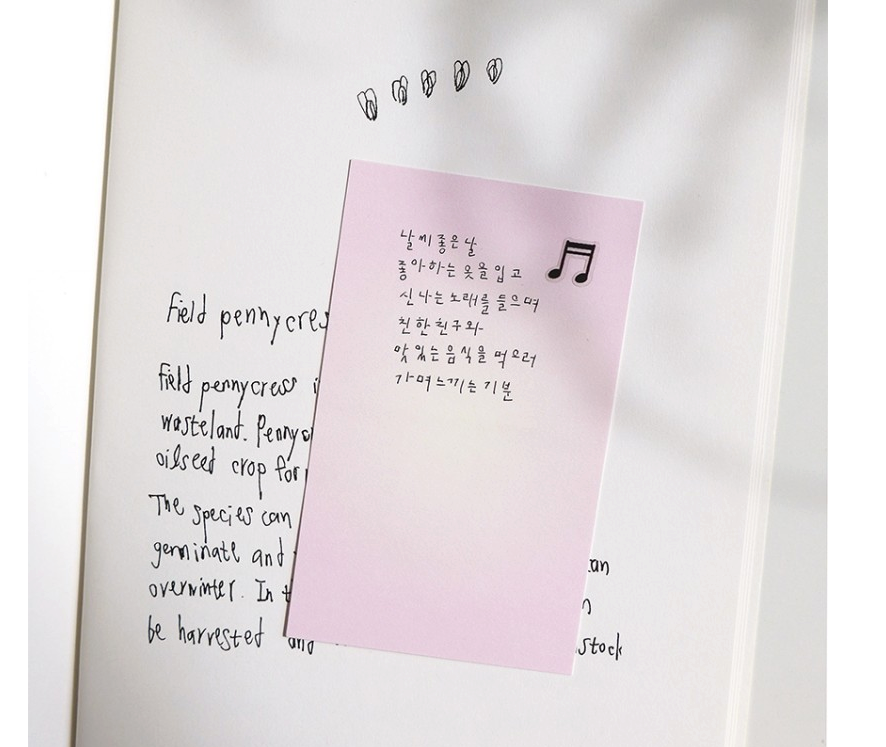 Field pennycres
날씨 좋은 날
좋아하는 옷을 입고
신나는 노래를 들으며
친한 친구와
맛있는 음식을 먹으러
가며 느끼는 기분
Field pennycress i
wasteland. Pennyc
oilseed crop for
The species can
germinate and can
overwinter. In t n
be harvested and stock